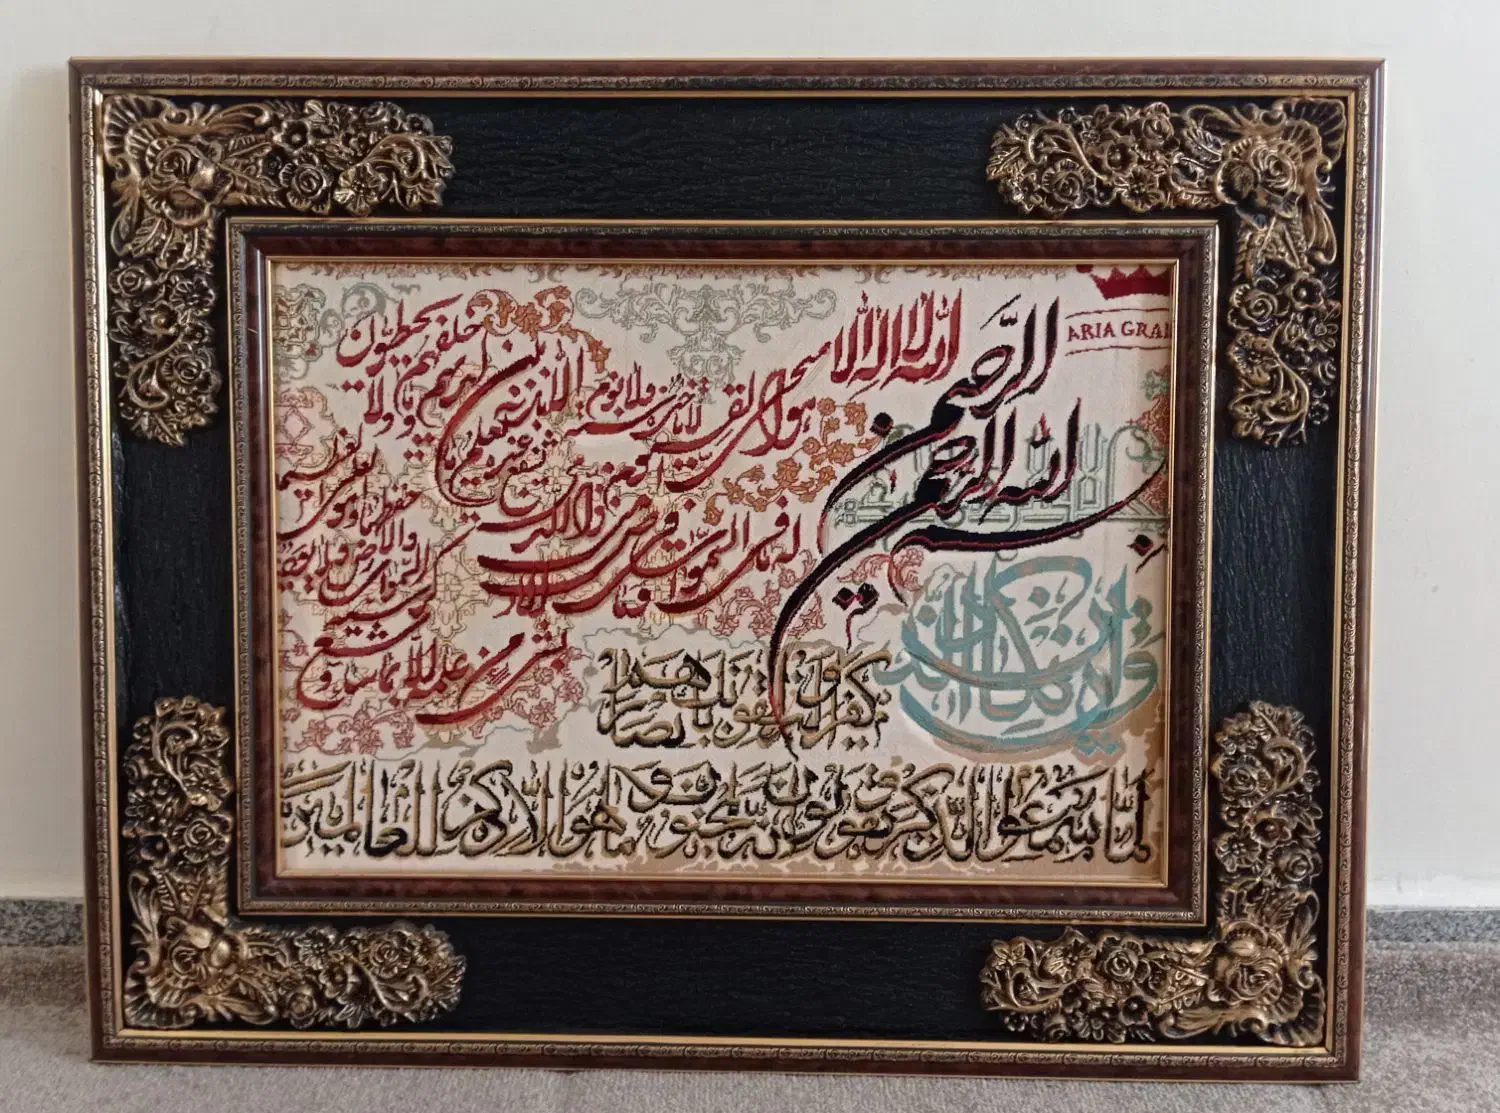 ARIA GRA
بسم الله الرحمن الرحیم
الله لا اله الا هو الحی القیوم لا تاخذه سنة ولا نوم
له ما فی السموات وما فی الارض من ذا الذی یشفع عنده الا باذنه
یعلم ما بین ایدیهم وما خلفهم ولا یحیطون
بشیء من علمه الا بما شاء وسع
کرسیه السموات والارض ولا یوده
حفظهما وهو العلی العظیم
وان یکاد الذین
کفروا لیزلقونک بابصارهم
لما سمعوا الذکر و یقولون انه لمجنون و ما هو الا ذکر للعالمین